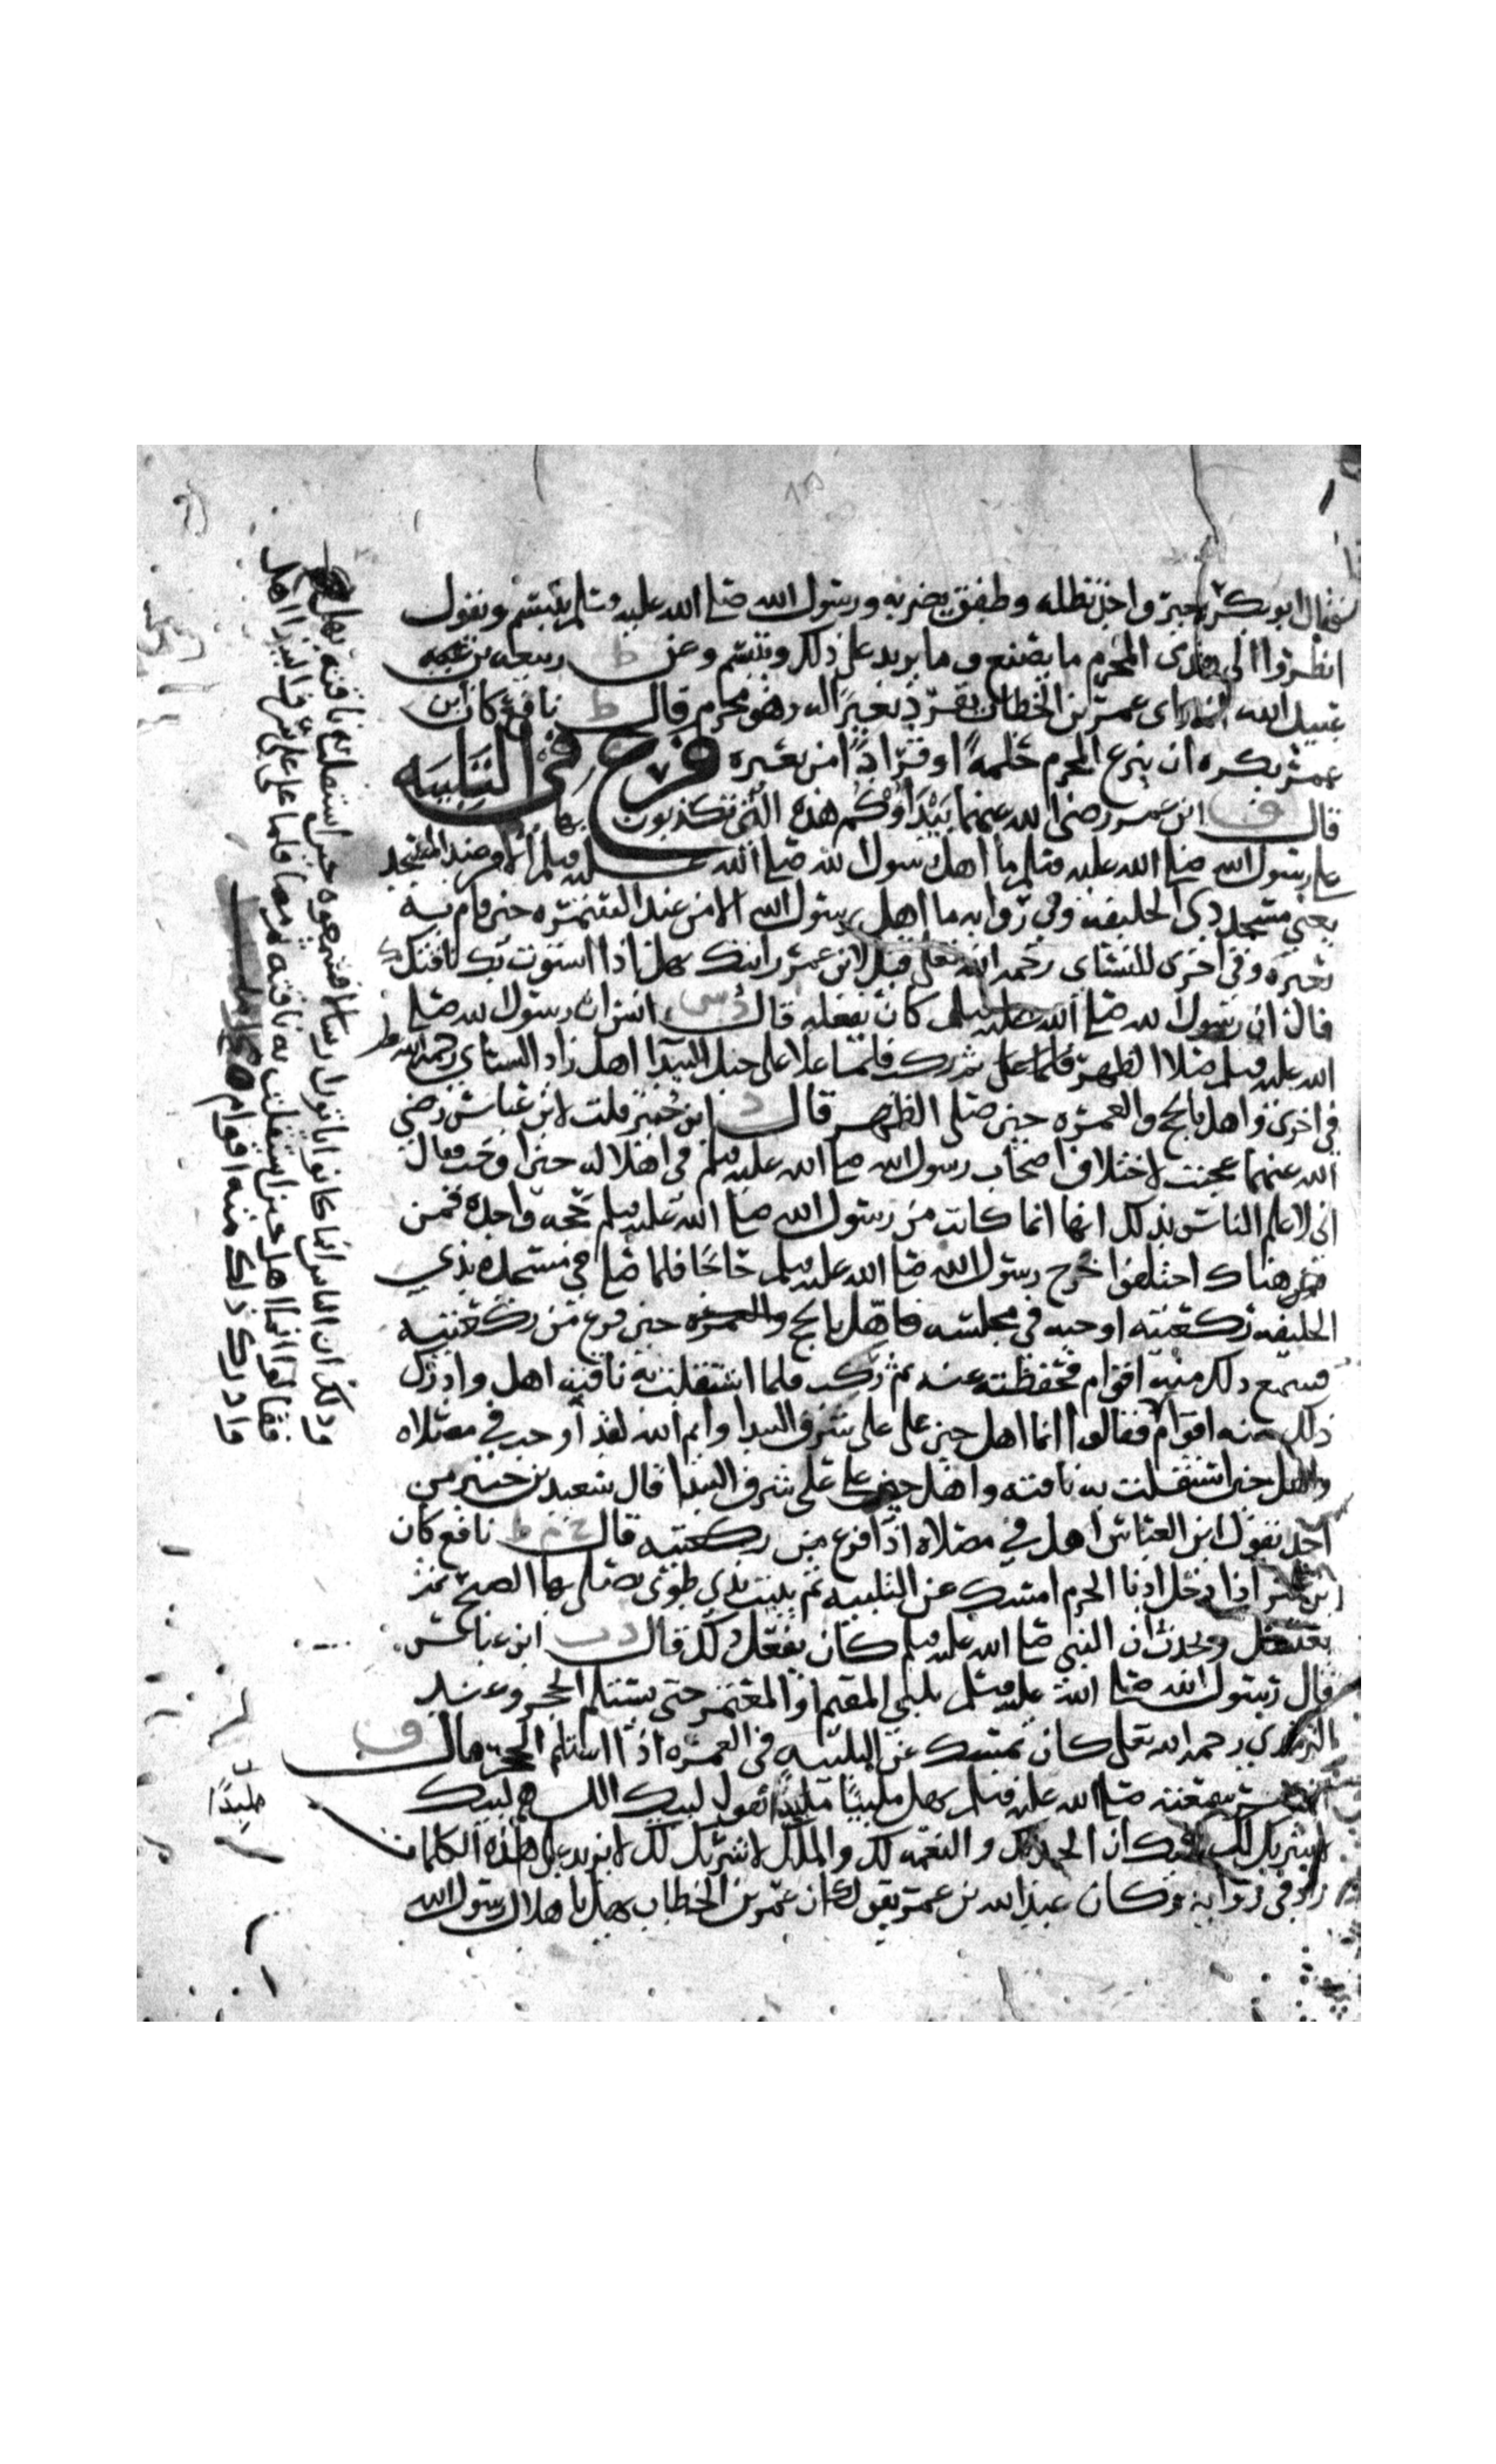 فقال ابو بكر بعير واحد تظله وطفق يضربه ورسول الله صلى الله عليه وسلم يتبسم ويقول
انظروا الى هذى المحرم ما يصنع وما يزيد على ذلك ويتبسم وعن ط ربيعه بن
عبد الله انه راى عمر بن الخطاب يقرد بعيرا له وهو محرم قال ط نافع كان ابن
عمر يكره ان ينزع المحرم حلمة او قرادا من بعيره فرع في التلبيه
قال ق ابن عمر رضي الله عنهما بيداؤكم هذه التي تكذبون بها
على رسول الله صلى الله عليه وسلم ما اهل رسول الله صلى الله عليه وسلم الا من عند المسجد
يعني مسجد ذي الحليفه وفي روايه ما اهل رسول الله الا من عند الشجره حين قام به
بعيره وفي اخرى للنساي رحمه الله تعالى قيل لابن عمر رايتك تهل اذا استوت بك ناقتك
قال ان رسول الله صلى الله عليه وسلم كان يفعله قال د س انس ان رسول الله صلى
الله عليه وسلم صلا الظهر ثم ركب فلما علا على جبل البيدا اهل زاد النساي رحمه الله
في اخرى واهل بالحج والعمره حين صلى الظهر قال د ابن جبير قلت لابن عباس رضي
الله عنهما عجبت لاختلاف اصحاب رسول الله صلى الله عليه وسلم في اهلاله حين اوجب فقال
اني لاعلم الناس بذلك انها انما كانت من رسول الله صلى الله عليه وسلم حجه واحده فمن
هناك اختلفوا خرج رسول الله صلى الله عليه وسلم حاجا فلما صلى في مسجده بذي
الحليفه ركعتيه اوجبه في مجلسه فاهل بالحج والعمره حين فرغ من ركعتيه
فسمع ذلك منه اقوام فحفظته عنه ثم ركب فلما استقلت به ناقته اهل وادرك
ذلك منه اقوام فقالوا انما اهل حين على على شرف البيدا وايم الله لقد اوجب في مصلاه
واهل حين استقلت به ناقته واهل حين علا على شرف البيدا قال سعيد بن جبير من
اخذ بقول ابن العباس اهل في مصلاه اذا فرغ من ركعتيه قال خ م ط نافع كان
ابن عمر اذا دخل ادنا الحرم امسك عن التلبيه ثم يبيت بذي طوى يصلي بها الصبح ثم
يغتسل ويحدث ان النبي صلى الله عليه وسلم كان يفعل ذلك قال د ت ابن عباس
قال رسول الله صلى الله عليه وسلم يلبي المقيم او المعتمر حتى يستلم الحجر وعند
الترمذي رحمه الله تعالى كان يمسك عن التلبيه في العمره اذا استلم الحجر قال ق
ابن عمر سمعته صلى الله عليه وسلم يهل ملبيا ملبدا يقول لبيك اللهم لبيك
لا شريك لك لبيك ان الحمد لك والنعمه لك والملك لا شريك لك لا يزيد على هذه الكلمات
زاد في روايه وكان عبد الله بن عمر يقول كان عمر بن الخطاب يهل باهلال رسول الله
ذلك ان الناس انما كانوا ياتون ارسالا فسمعوه حين استقلت به ناقته يهل
فقالوا انما اهل حين استقلت به ناقته ثم مضا فلما علا على شرف البيدا اهل
وادرك ذلك منه اقوام
ملبدا